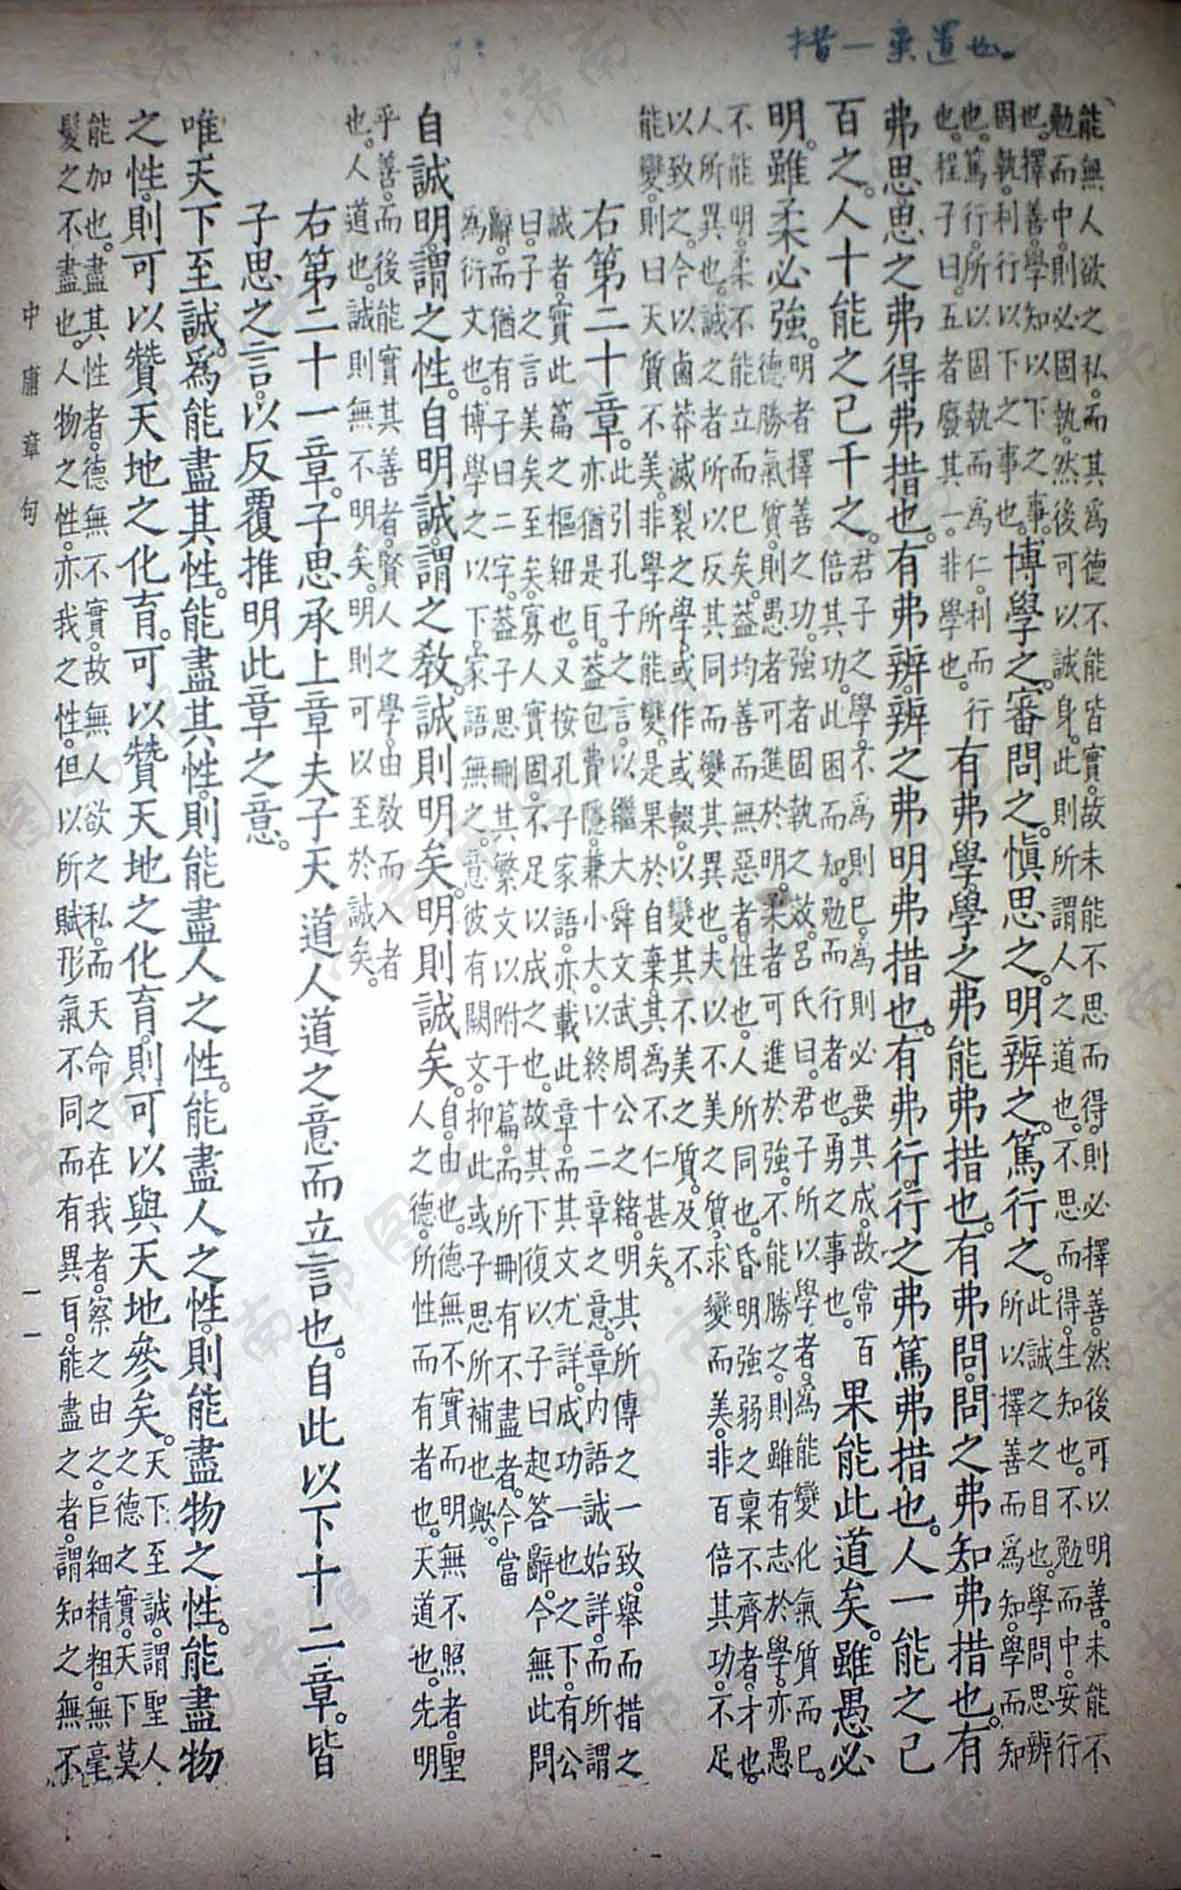 措一棄道也。
能無人欲之私。而其為德不能皆實。故未能不思而得。則必擇善。然後可以明善。未能不
勉而中。則必固執。然後可以誠身。此則所謂人之道也。不思而得。生知也。不勉而中。安行
也。擇善。學知以下之事。
固執。利行以下之事也。
博學之。審問之。慎思之。明辨之。篤行之。
此誠之之目也。學問思辨
所以擇善而為知。學而知
也。篤行。所以固執而為仁。利而行
也。程子曰。五者廢其一。非學也。
有弗學。學之弗能弗措也。有弗問。問之弗知弗措也。有
弗思。思之弗得弗措也。有弗辨。辨之弗明弗措也。有弗行。行之弗篤弗措也。人一能之己
百之。人十能之己千之。
君子之學。不為則已。為則必要其成。故常百
倍其功。此困而知。勉而行者也。勇之事也。
果能此道矣。雖愚必
明。雖柔必強。
明者擇善之功。強者固執之效。呂氏曰。君子所以學者。為能變化氣質而已。
德勝氣質。則愚者可進於明。柔者可進於強。不能勝之。則雖有志於學。亦愚
不能明。柔不能立而已矣。蓋均善而無惡者。性也。人所同也。昏明強弱之稟不齊者。才也。
人所異也。誠之者所以反其同而變其異也。夫以不美之質。求變而美。非百倍其功。不足
以致之。今以鹵莽滅裂之學。或作或輟。以變其不美之質。及不
能變。則曰天質不美。非學所能變。是果於自棄。其為不仁甚矣。
右第二十章。
此引孔子之言。以繼大舜文武周公之緒。明其所傳之一致。舉而措之
亦猶是耳。蓋包費隱。兼小大。以終十二章之意。章內語誠始詳。而所謂
誠者。實此篇之樞紐也。又按孔子家語。亦載此章。而其文尤詳。成功一也之下。有公
曰。子之言美矣至矣。寡人實固。不足以成之也。故其下復以子曰起答辭。今無此問
辭。而猶有子曰二字。蓋子思刪其繁文以附于篇。而所刪有不盡者。今當
為衍文也。博學之以下。家語無之。意彼有闕文。抑此或子思所補也歟。
自誠明。謂之性。自明誠。謂之教。誠則明矣。明則誠矣。
自由也。德無不實而明無不照者。聖
人之德。所性而有者也。天道也。先明
乎善。而後能實其善者。賢人之學。由教而入者
也。人道也。誠則無不明矣。明則可以至於誠矣。
右第二十一章。子思承上章夫子天道人道之意而立言也。自此以下十二章。皆
子思之言。以反覆推明此章之意。
唯天下至誠。為能盡其性。能盡其性。則能盡人之性。能盡人之性。則能盡物之性。能盡物
之性。則可以贊天地之化育。可以贊天地之化育。則可以與天地參矣。
天下至誠。謂聖人
之德之實。天下莫
能加也。盡其性者。德無不實。故無人欲之私。而天命之在我者。察之由之。巨細精粗。無毫
髮之不盡也。人物之性。亦我之性。但以所賦形氣不同而有異耳。能盡之者。謂知之無不
中庸章句
一一